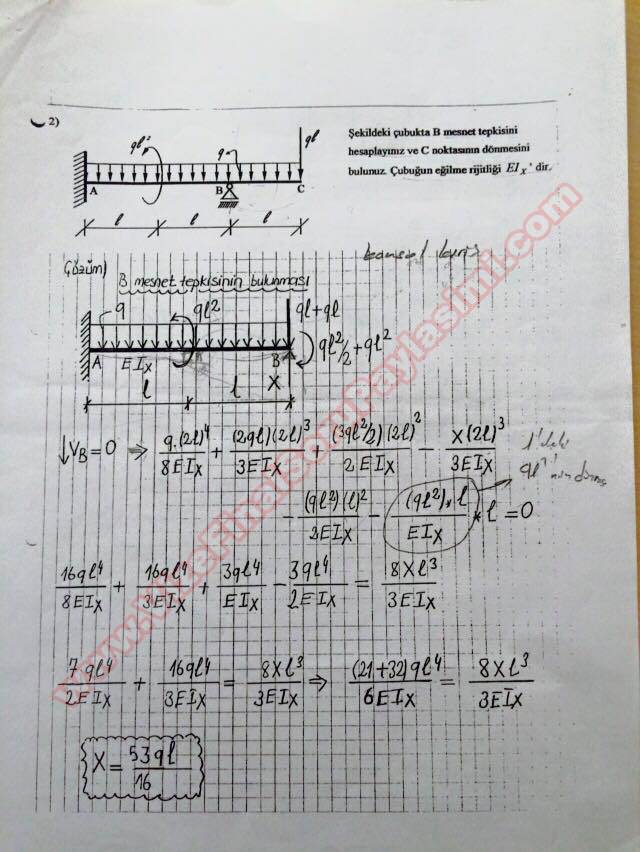 2)
Şekildeki çubukta B mesnet tepkisini
hesaplayınız ve C noktasının dönmesini
bulunuz. Çubuğun eğilme rijitliği EIx' dir.
ql² q ql
A B C
l l l
Çözüm)
B mesnet tepkisinin bulunması
q ql² ql+ql
ql²/2 + ql²
A EIx B
X
l l
↓VB=0 ⇒ q.(2l)⁴/8EIx + (2ql)(2l)³/3EIx + (3ql²/2)(2l)²/2EIx - X(2l)³/3EIx
- (ql²)(l)²/2EIx - (ql²)*l/EIx * l = 0
16ql⁴/8EIx + 16ql⁴/3EIx + 3ql⁴/EIx - 3ql⁴/2EIx = 8Xl³/3EIx
7ql⁴/2EIx + 16ql⁴/3EIx = 8Xl³/3EIx ⇒ (21+32)ql⁴/6EIx = 8Xl³/3EIx
X = 53ql/16
www.VizeFinalSoruPaylasimi.com